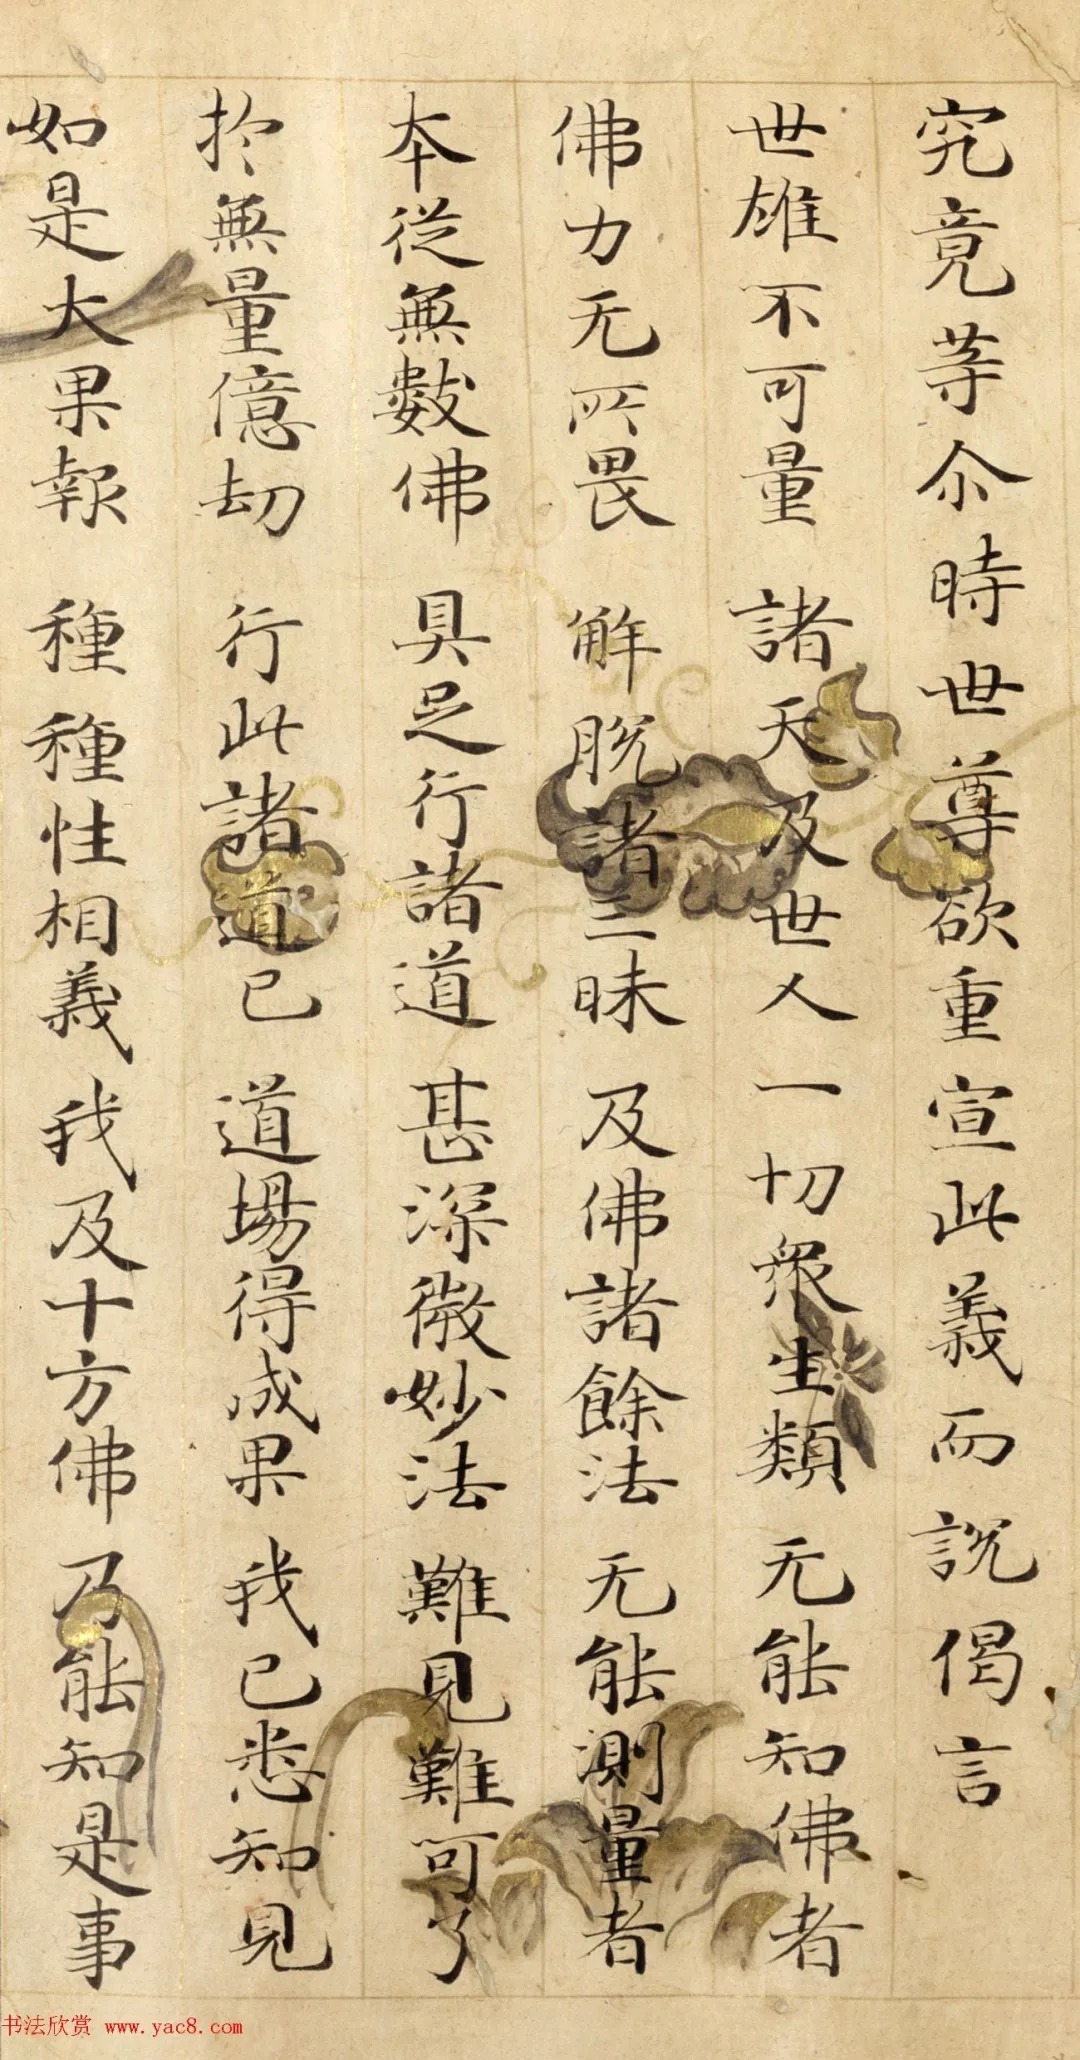 究竟等尒時世尊欲重宣此義而說偈言
世雄不可量 諸天及世人 一切衆生類 无能知佛者
佛力无所畏 解脫諸三昧 及佛諸餘法 无能測量者
本從無數佛 具足行諸道 甚深微妙法 難見難可了
於無量億劫 行此諸道已 道場得成果 我已悉知見
如是大果報 種種性相義 我及十方佛 乃能知是事
书法欣赏 www.yac8.com